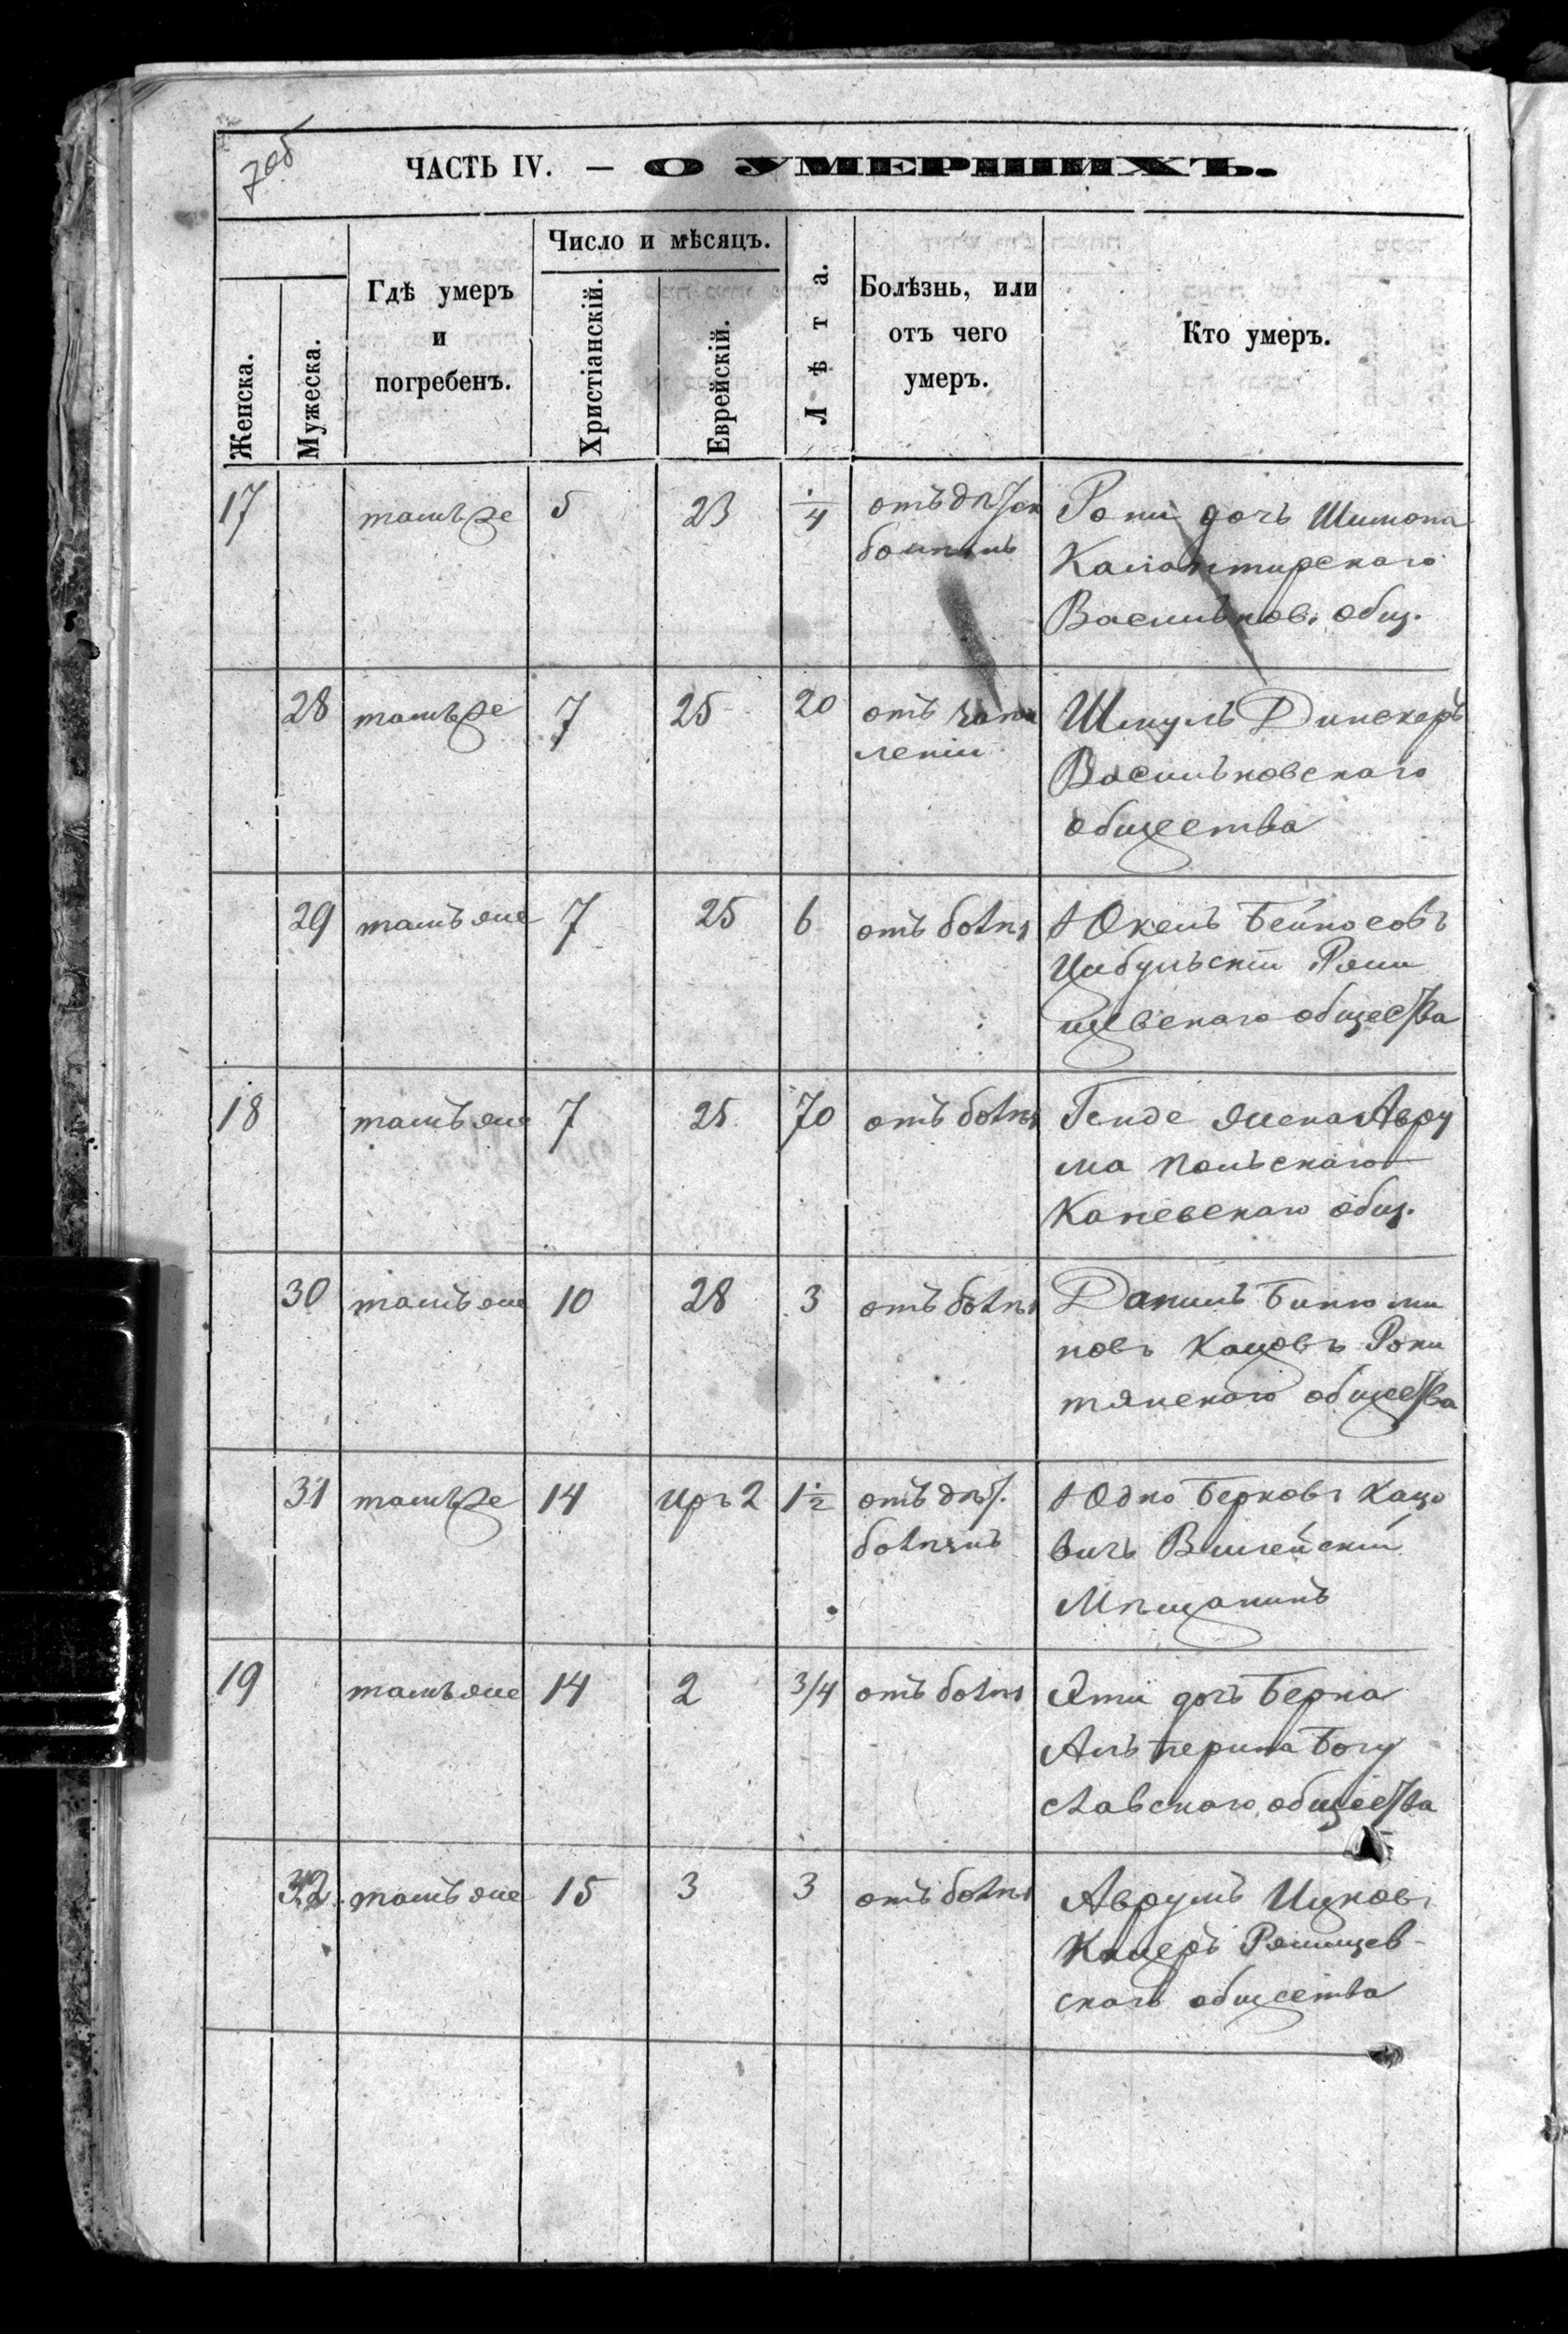 7об
ЧАСТЬ IV. — О УМЕРШИХЪ.
Женска.
Мужеска.
Гдѣ умеръ
и
погребенъ.
Число и мѣсяцъ.
Христіанскій.
Еврейскій.
Лѣта.
Болѣзнь, или
отъ чего
умеръ.
Кто умеръ.
17 тамъже 5 23 1/4 отъ дѣтск Рони дочь Шимона
болѣзнь
Васильков. общ.
28 тамъже 7 25 20 отъ Шмуль Динскеръ
ленія Васильковскаго
общества
29 тамъ же 7 25 6 отъ болѣз Юкель Бейносовъ
Цибульскій Ряпи
щевскаго общества
18 тамъ же 7 25 70 отъ болѣз Генде жена Авру
ма Польскаго
Каневскаго общ.
30 тамъ же 10 28 3 отъ болѣз Данилъ Биню ми
новъ Кацовъ Роки
тянскаго общества
31 тамъже 14 иръ 2 1 1/2 отъ дѣт. Юдко Берковъ Кацо
болѣзнь вичъ Вилейскій
Мѣщанинъ
19 тамъ же 14 2 3/4 отъ болѣз Эти дочь Берка
Альперина Богу
славскаго общества
32 тамъ же 15 3 3 отъ болѣз Аврумъ Ицковъ
Ряпищев-
скаго общества